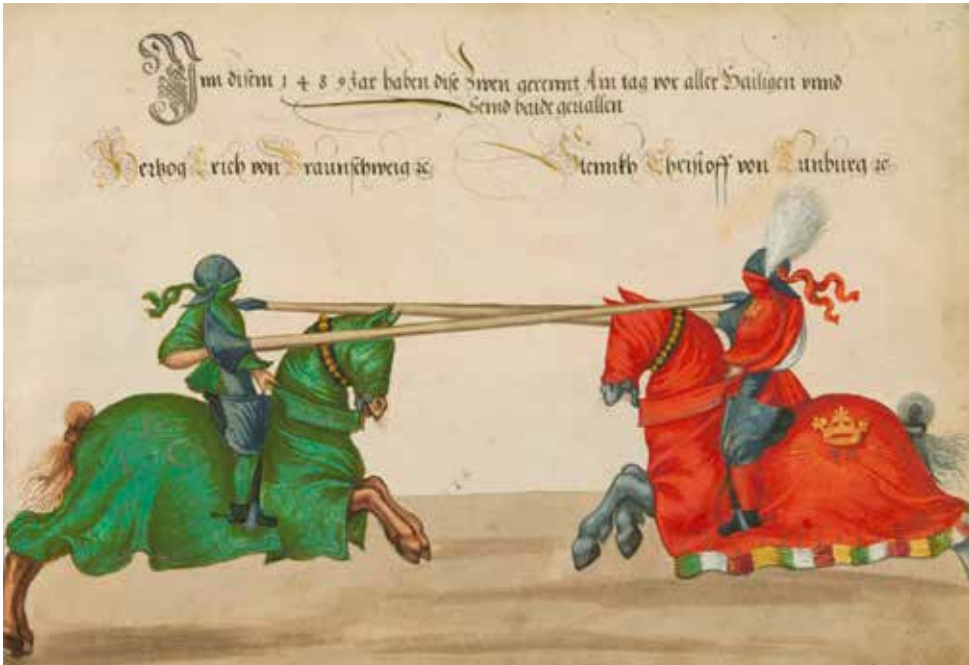 Inn disem 1489 Jar haben dise Zwen gerennt Am tag vor aller Hailigen vnnd
Seind baide geuallen
Hertzog Erich von Braunschweig ꝛc
Christoff von ꝛc